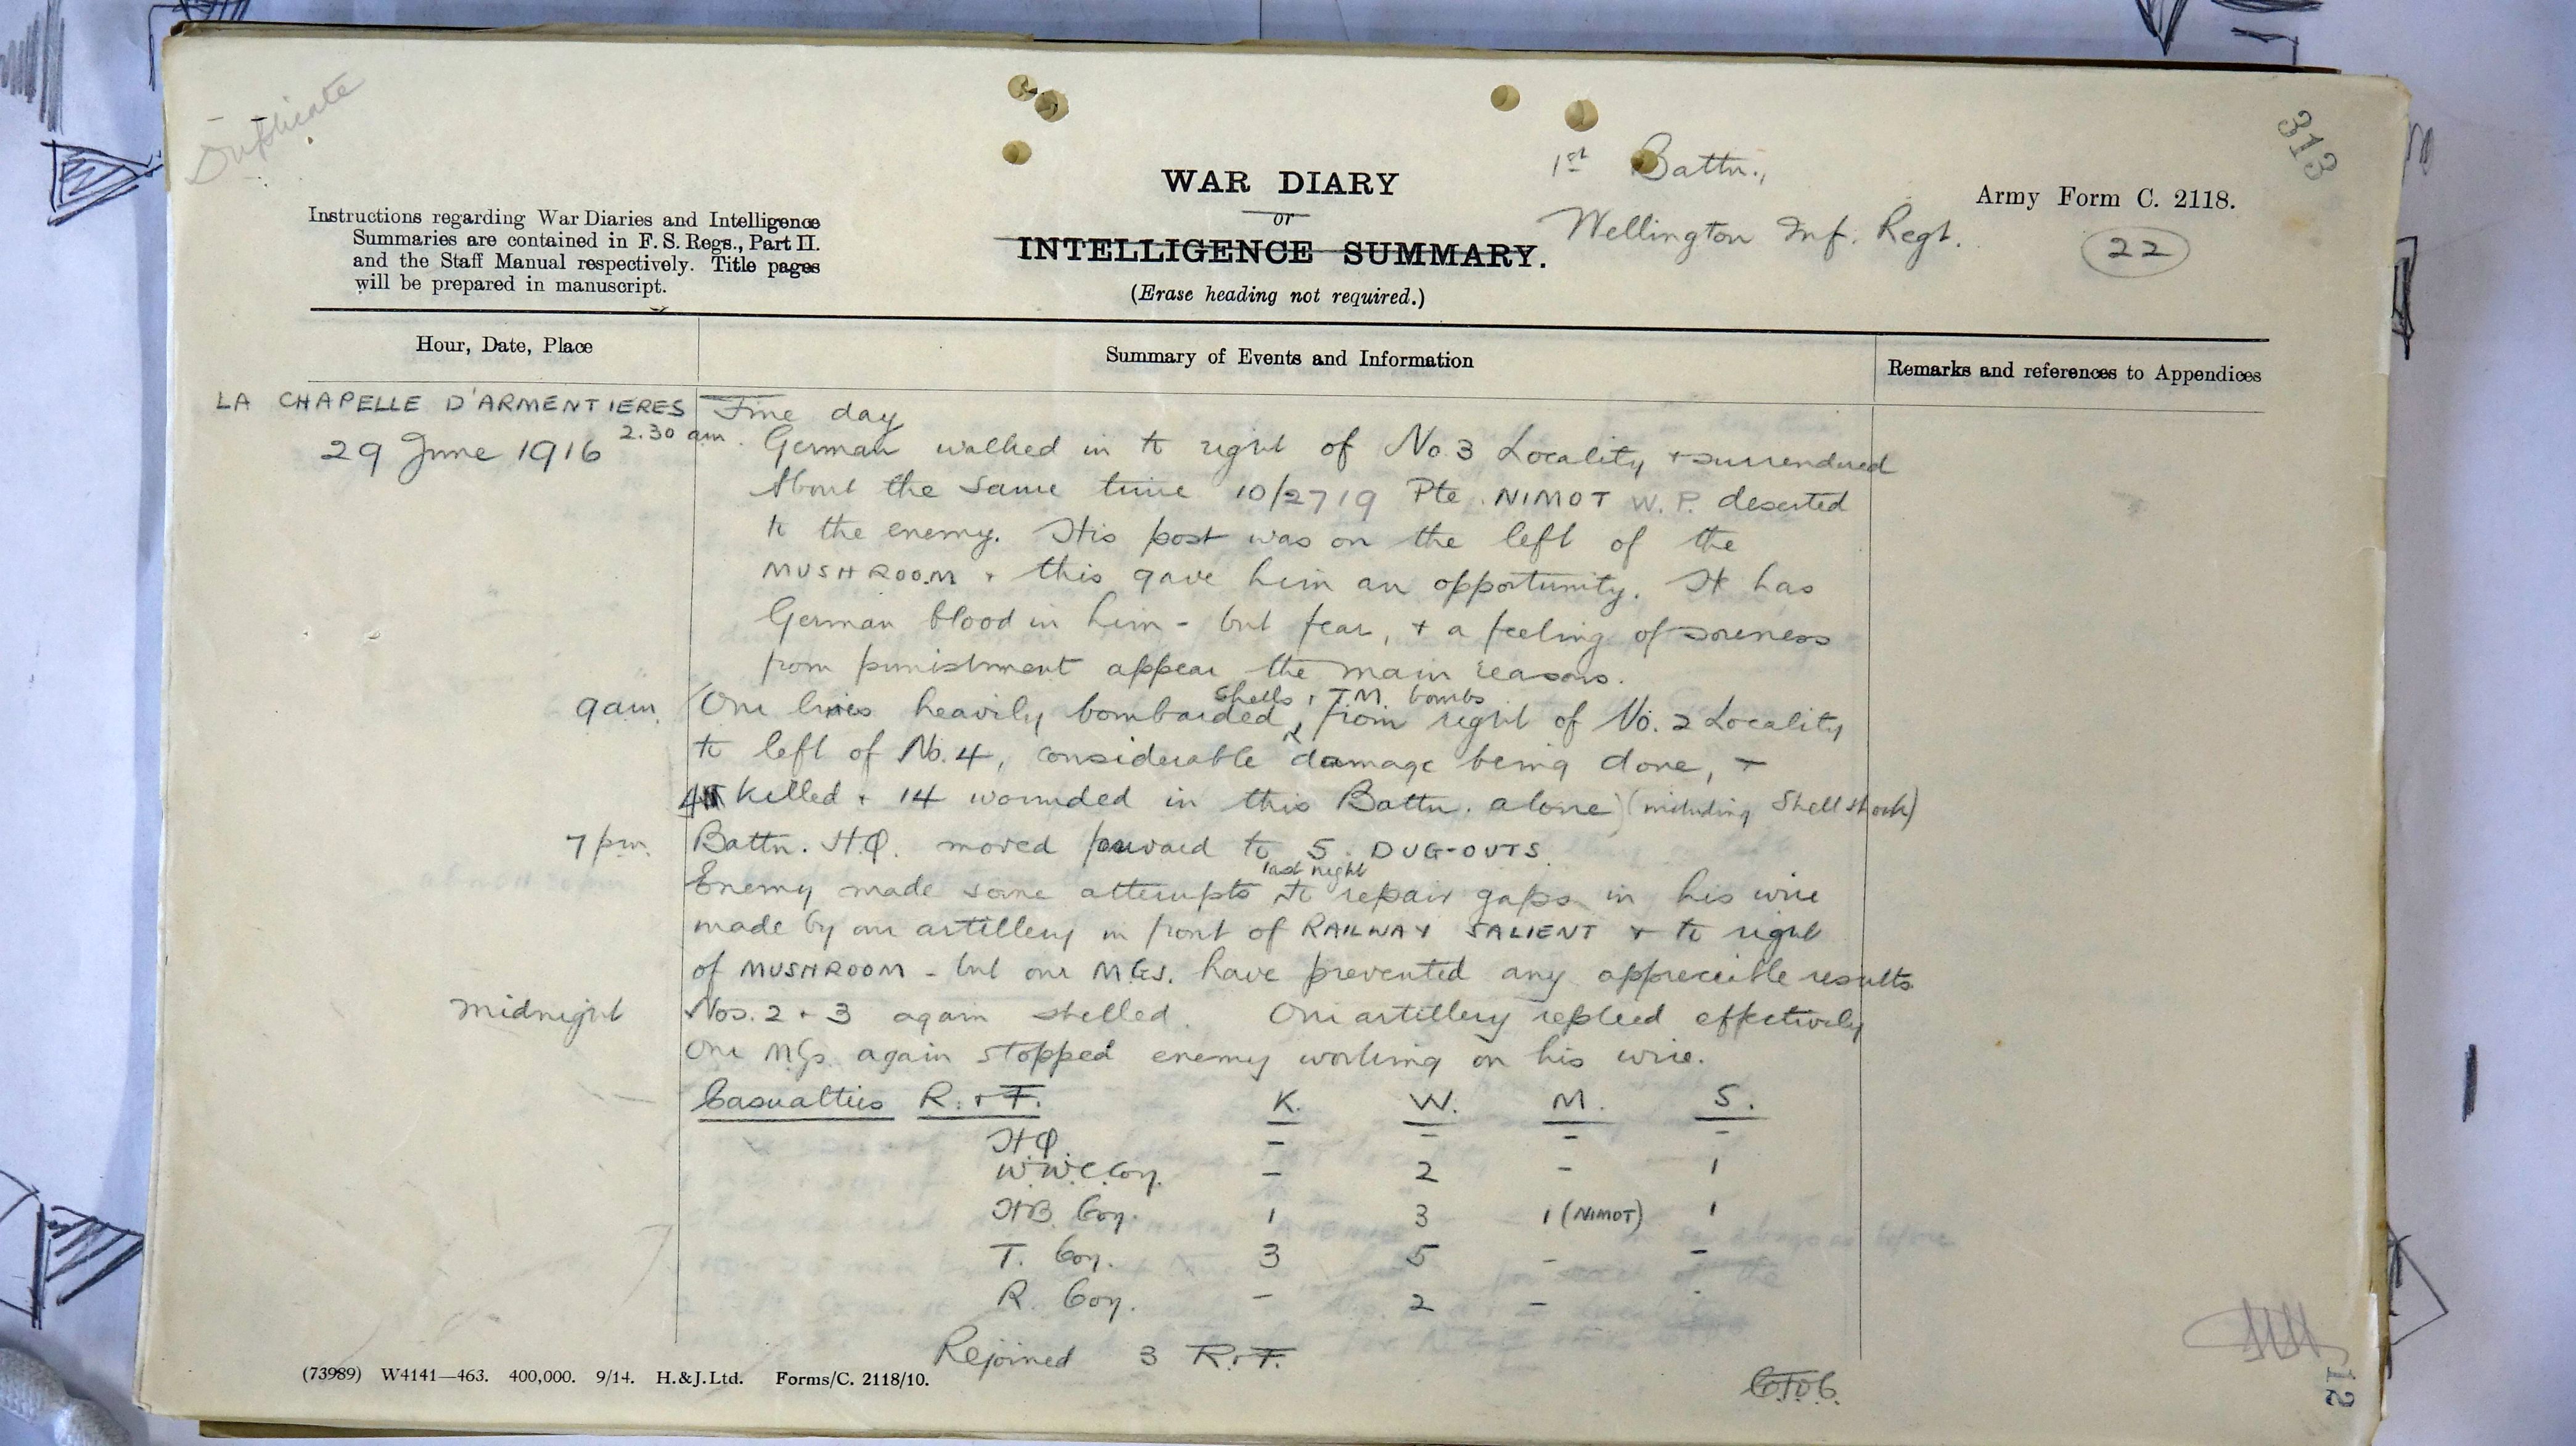 Duplicate
313
1st Battn.,
Wellington Inf. Regt.
WAR DIARY
or
INTELLIGENCE SUMMARY.
(Erase heading not required.)
Army Form C. 2118.
22
Instructions regarding War Diaries and Intelligence
Summaries are contained in F. S. Regs., Part II.
and the Staff Manual respectively. Title pages
will be prepared in manuscript.
Hour, Date, Place
Summary of Events and Information
Remarks and references to Appendices
LA CHAPELLE D'ARMENTIERES Fine day
29 June 1916 2.30 am. German walked in to right of No. 3 Locality + surrendered
About the same time 10/2719 Pte. NIMOT W.P. deserted
to the enemy. His post was on the left of the
MUSHROOM + this gave him an opportunity. He has
German blood in him - but fear, + a feeling of soreness
from punishment appear the main reasons.
9am. Our lines heavily bombarded shells + T.M. bombs from right of No. 2 Locality
to left of No. 4, considerable damage being done, +
4 killed + 14 wounded in this Battn. alone (including Shell shock)
7 pm. Battn. H.Q. moved forward to 5. DUG-OUTS.
Enemy made some attempts last night to repair gaps in his wire
made by our artillery in front of RAILWAY SALIENT + to right
of MUSHROOM - but our M.Gs. have prevented any appreciable results.
Midnight Nos. 2 + 3 again shelled. Our artillery replied effectively
Our M.Gs. again stopped enemy working on his wire.
Casualties R. + F. K. W. M. S.
HQ. - - - -
W.W.C. Coy. - 2 - 1
H.B. Coy. 1 3 1 (NIMOT) 1
T. Coy. 3 5 - -
R. Coy. - 2 - -
Rejoined 3 R. + F.
(73989) W4141—463. 400,000. 9/14. H.&J.Ltd. Forms/C. 2118/10.
12